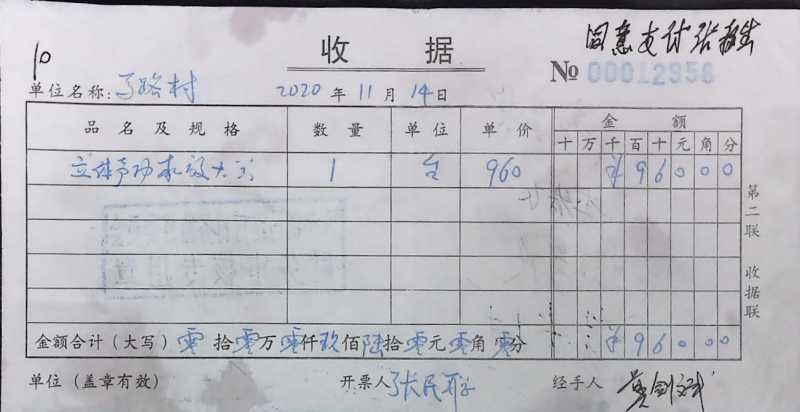 10
收 据
同意支付 张
No 00012956
单位名称: 马路村 2020 年 11 月 14 日
品名及规格 数量 单位 单价 金额
十 万 千 百 十 元 角 分
立体声功机 1 台 960 ¥ 9 6 0 0 0
第二联 收据联
金额合计（大写） 零 拾 零 万 零 仟 玖 佰 陆 拾 零 元 零 角 零 分 ¥ 9 6 0 0 0
单位（盖章有效） 开票人 张民 经手人 黄剑斌